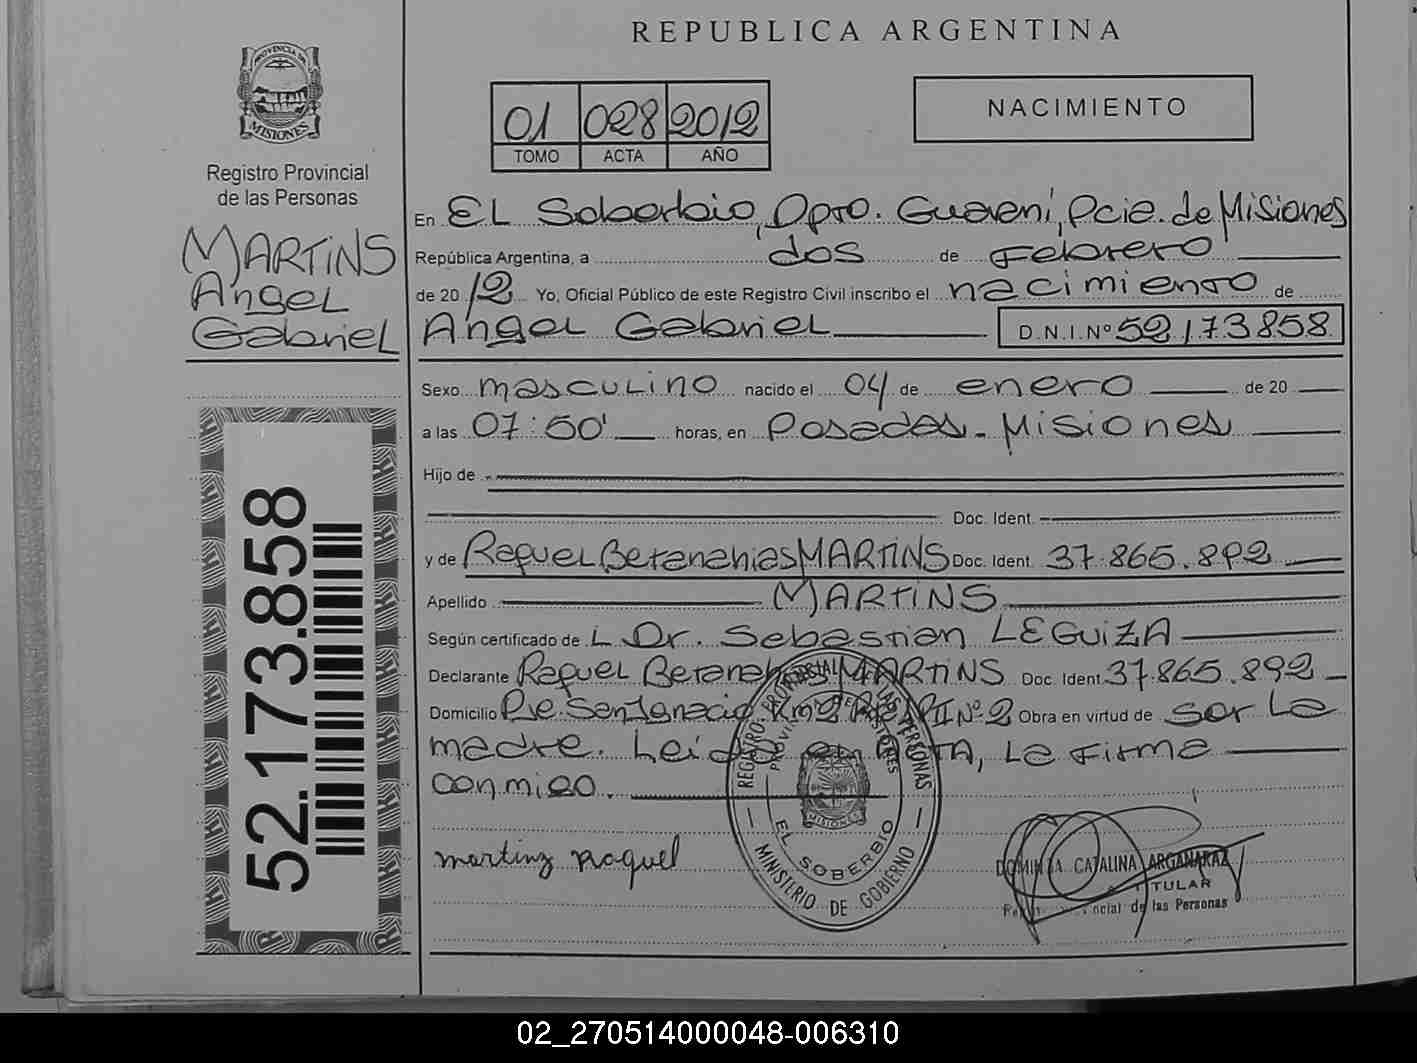 REPUBLICA ARGENTINA
PROVINCIA DE
MISIONES
Registro Provincial
de las Personas
MARTINS
Angel
Gabriel
52.173.858
01 028 2012
TOMO ACTA AÑO
NACIMIENTO
En EL Soberbio, Dpto. Guaraní, Pcia. de Misiones
República Argentina, a dos de Febrero
de 20 12 Yo, Oficial Público de este Registro Civil inscribo el nacimiento de
Angel Gabriel D.N.I.Nº 52173858
Sexo masculino nacido el 04 de enero de 20
a las 07:50' horas, en Posadas - Misiones
Hijo de
Doc. Ident.
y de Raquel Betanahias MARTINS Doc. Ident. 37.865.892
Apellido MARTINS
Según certificado de L Dr. Sebastian LEGUIZA
Declarante Raquel Betanahias MARTINS Doc. Ident. 37.865.892
Domicilio Pje San Ignacio Km2 Nº 2 Obra en virtud de ser la
madre. Leída el ACTA, la firma
conmigo.
REGISTRO PROVINCIAL DE LAS PERSONAS
PROVINCIA DE MISIONES
MISIONES
EL SOBERBIO
MINISTERIO DE GOBIERNO
martinz raquel
CATALINA ARGAÑARAZ
TULAR
de las Personas
02_270514000048-006310